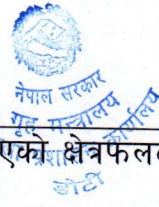 नेपाल सरकार
गृह मन्त्रालय
कार्यालय
एको क्षेत्रफल
डोटी